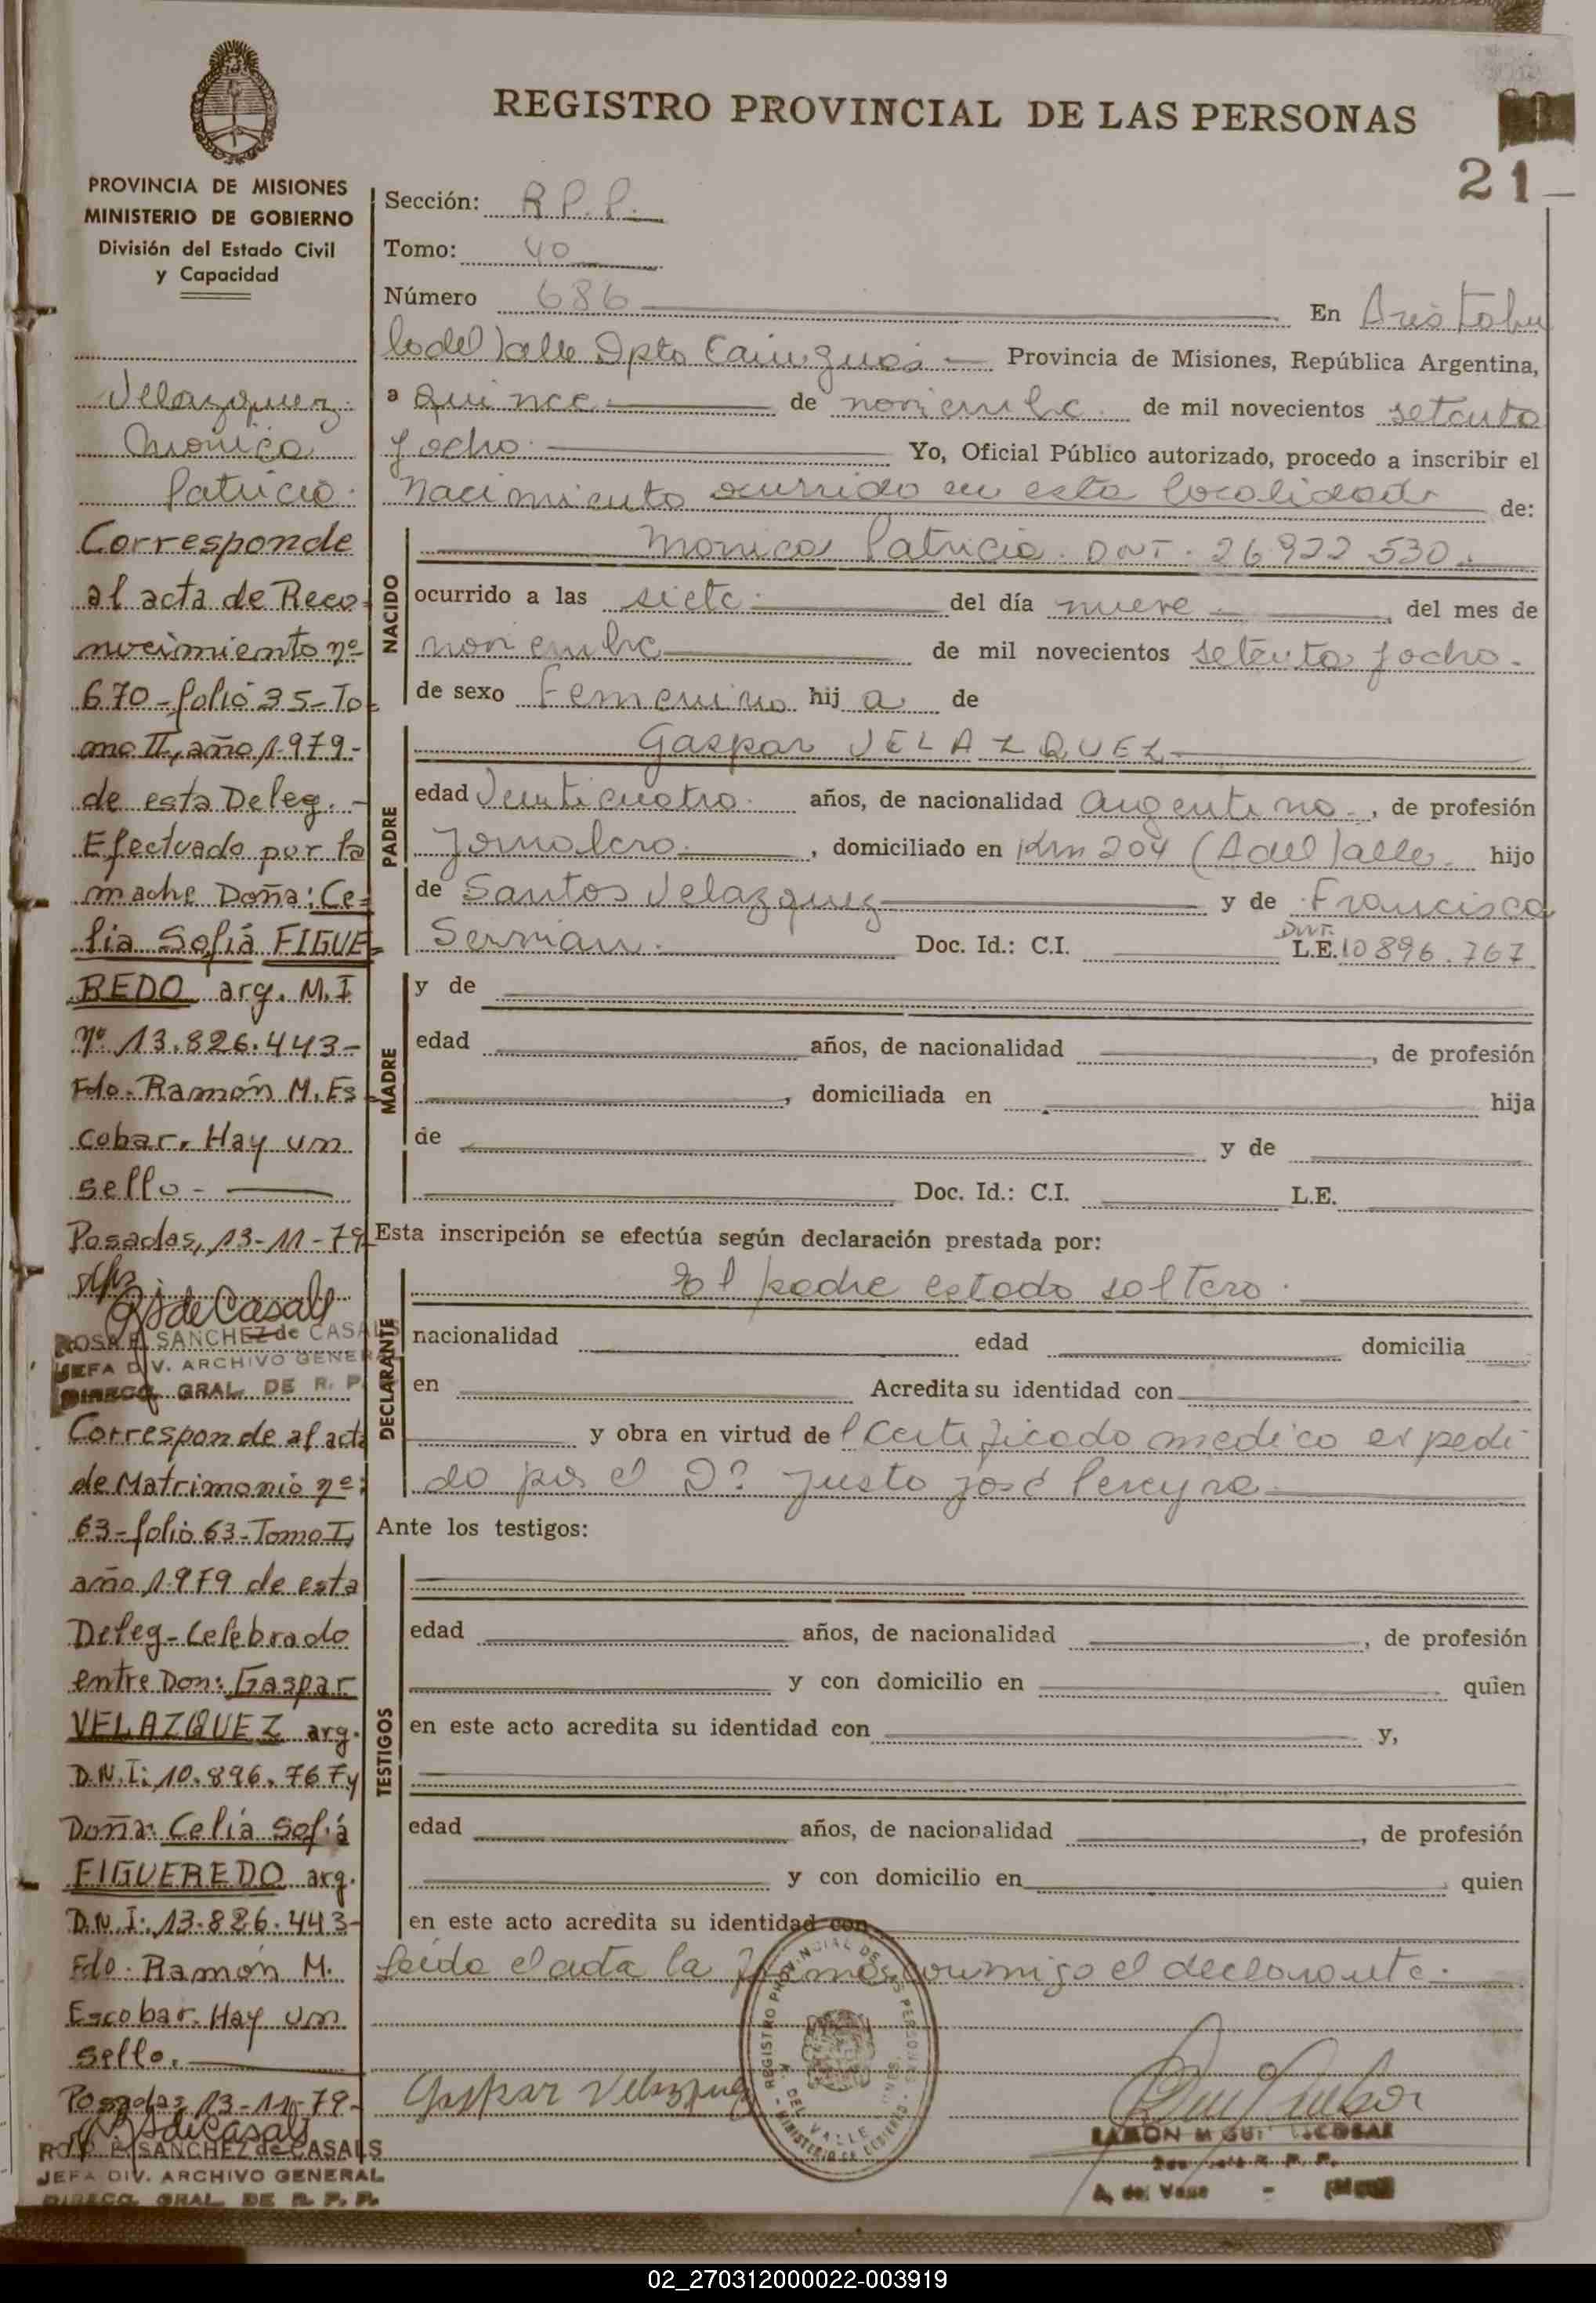 REGISTRO PROVINCIAL DE LAS PERSONAS
21
PROVINCIA DE MISIONES
MINISTERIO DE GOBIERNO
División del Estado Civil
y Capacidad
Velazquez
Monica
Patricia
Corresponde
al acta de Reco
nocimiento nº
670-folio 35-To
mo II, año 1.979-
de esta Deleg.-
Efectuado por la
madre Doña: Ce=
lia Sofiá FIGUE=
REDO arg. M.I
nº 13.826.443-
Fdo. Ramón M. Es
cobar. Hay un
sello-
Posadas, 13-11-79
RSdeCasals
ROSA E. SANCHEZ de CASALS
JEFA DIV. ARCHIVO GENERAL
DIRECC. GRAL. DE R. P.
Corresponde al acta
de Matrimonio nº:
63-folio 63-Tomo I,
año 1.979 de esta
Deleg-Celebrado
entre Don: Gaspar
VELAZQUEZ arg.
D.N.I: 10.896.767 y
Doña: Celia Sofiá
FIGUEREDO arg.
D.N.I: 13.826.443-
Fdo. Ramón M.
Escobar. Hay un
sello.
Posadas 13-11-79-
RSdeCasals
ROSA E. SANCHEZ de CASALS
JEFA DIV. ARCHIVO GENERAL
DIRECC. GRAL. DE R. P. P.
Sección: R.P.P.
Tomo: 40
Número 686 En Aristobu
lo del Valle Dpto Cainguás Provincia de Misiones, República Argentina,
a Quince de noviembre de mil novecientos setenta
y ocho Yo, Oficial Público autorizado, procedo a inscribir el
nacimiento ocurrido en esta localidad de:
NACIDO
Monica Patricia. DNI. 26.922.530.
ocurrido a las siete del día nueve, del mes de
noviembre de mil novecientos setenta y ocho.
de sexo Femenino hij a de
PADRE
Gaspar VELAZQUEZ
edad Veinticuatro años, de nacionalidad argentino, de profesión
Jornalero, domiciliado en Km 204 (A del Valle hijo
de Santos Velazquez y de Francisca
Doc. Id.: C.I. DNI. L.E. 10896.767
MADRE
y de
edad años, de nacionalidad , de profesión
, domiciliada en hija
de y de
Doc. Id.: C.I. L.E.
Esta inscripción se efectúa según declaración prestada por:
DECLARANTE
El padre estado soltero.
nacionalidad edad domicilia
en Acredita su identidad con
y obra en virtud del Certificado medico expedi
do por el Dr. Justo José Pereyra
Ante los testigos:
TESTIGOS
edad años, de nacionalidad , de profesión
y con domicilio en quien
en este acto acredita su identidad con y,
edad años, de nacionalidad , de profesión
y con domicilio en quien
en este acto acredita su identidad con
Leida el acta la firma conmigo el declarante.
REGISTRO PROVINCIAL DE LAS PERSONAS
A. DEL VALLE
MINISTERIO DE GOBIERNO
Gaspar Velazquez
RAMON MIGUEL ESCOBAR
A. del Valle
02_270312000022-003919